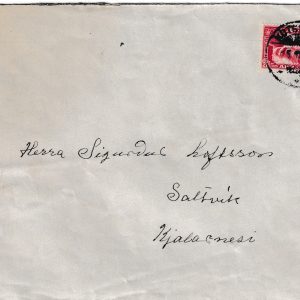 Herra Sigurdur Loftsson
Saltvik
Kjalarnesi